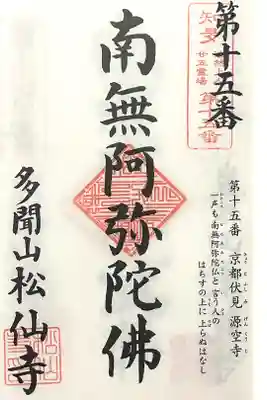 第十五番
知多
廿五霊場
第十五番
南無阿弥陀佛
第十五番 京都伏見 源空寺
一声も南無阿弥陀仏と言う人の
はちすの上に 上らぬはなし
多聞山松仙寺